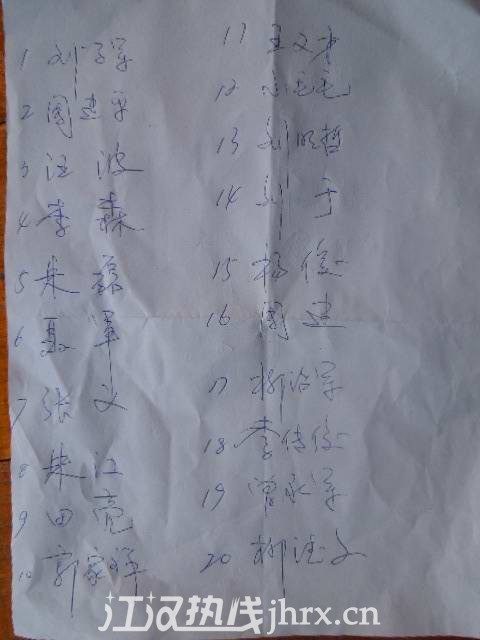 1 刘子军
2 周志平
3 汪波
4 李森
5 朱磊
6 聂军
7 张义
8 朱江
9 田亮
10 郭家祥
11 王文才
12 毛毛
13 刘明哲
14 刘于
15 杨俊
16 周建
17 柳治军
18 李传俊
19 曾永军
20 柳德文
江汉热线jhrx.cn